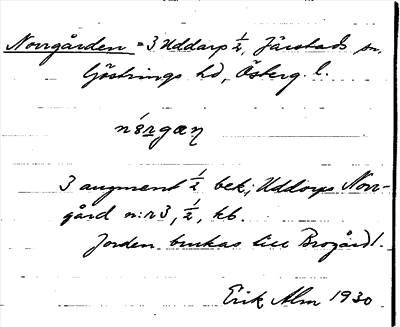 Norrgården = 3 Uddarp ½, Järstads sn.
Göstrings hd, Österg. l.
nórgæn
3 augment ½ bek; Uddorps Norr-
gård n:r 3, ½, kb.
Jorden brukas till Brogård.
Erik Alm 1930